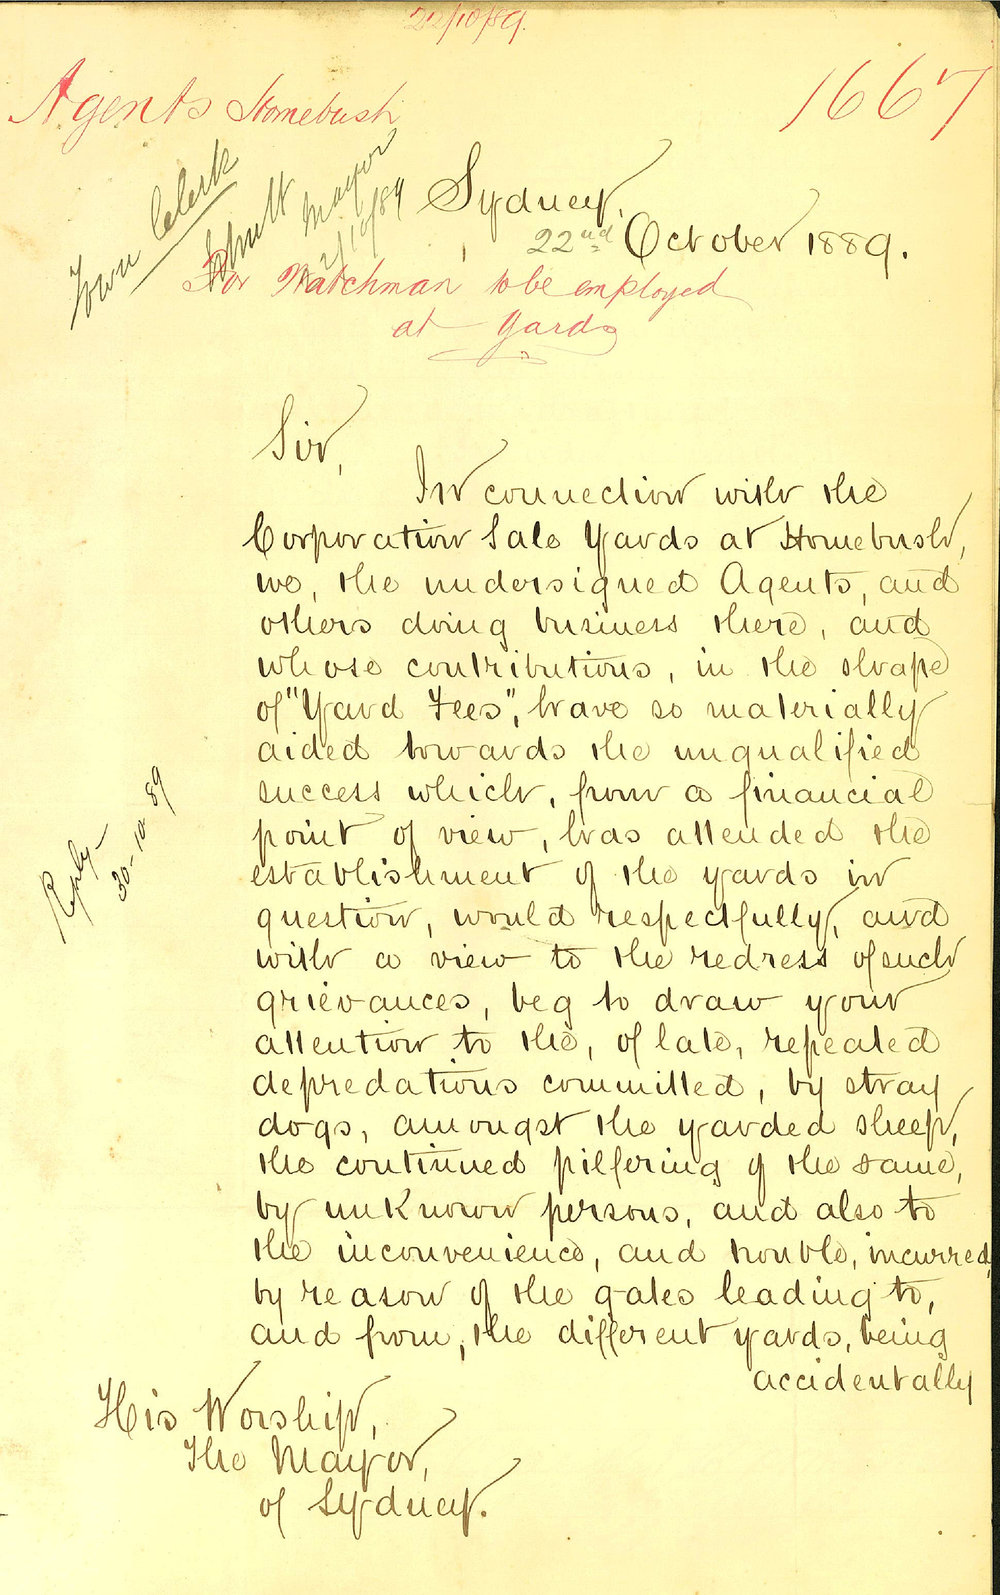 22/10/89.
Agents Homebush
1667
Town Clerk
Mayor
22/10/89
Sydney,
22nd October 1889.
For Watchman to be employed
at Yards
Sir,
In connection with the
Corporation Sale Yards at Homebush,
we, the undersigned Agents, and
others doing business there, and
whose contributions, in the shape
of "Yard Fees", have so materially
aided towards the unqualified
success which, from a financial
point of view, has attended the
establishment of the yards in
question, would respectfully, and
with a view to the redress of such
grievances, beg to draw your
attention to the, of late, repeated
depredations committed, by stray
dogs, amongst the yarded sheep,
the continued pilfering of the same,
by unknown persons, and also to
the inconvenience, and trouble, incurred,
by reason of the gates leading to,
and from, the different yards, being
accidentally
Reply
30-10-89
His Worship,
The Mayor,
of Sydney.